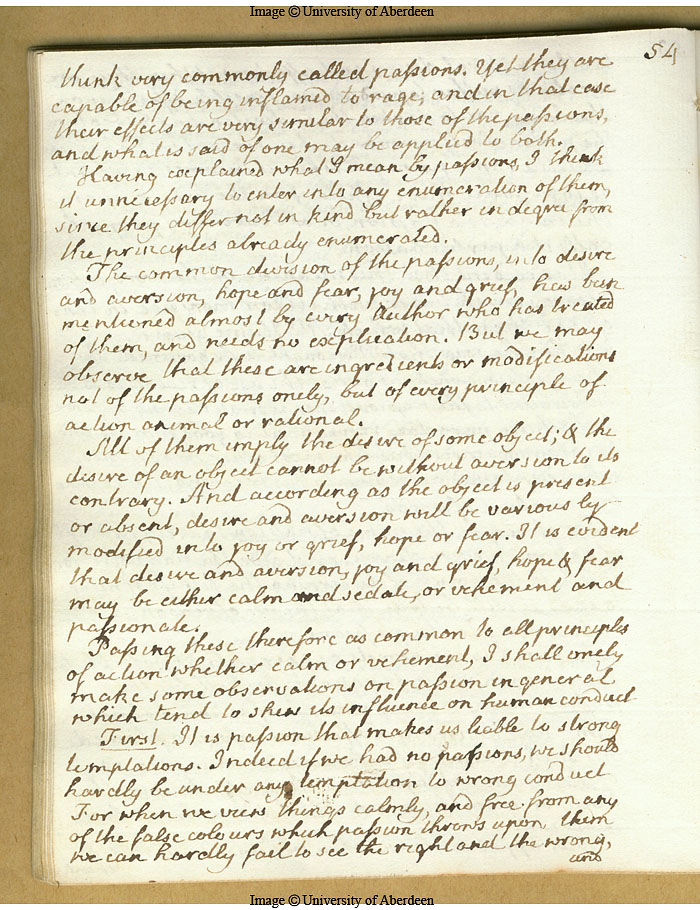 Image © University of Aberdeen
54
think very commonly called passions. Yet they are
capable of being inflamed to rage, and in that case
their effects are very similar to those of the passions,
and what is said of one may be applied to both.
Having explained what I mean by passions, I think
it unnecessary to enter into any enumeration of them,
since they differ not in kind but rather in degree from
the principles already enumerated.
The common division of the passions, into desire
and aversion, hope and fear, joy and grief, has been
mentioned almost by every Author who has treated
of them, and needs no explication. But we may
observe that these are ingredients or modifications
not of the passions onely, but of every principle of
action animal or rational.
All of them imply the desire of some object; & the
desire of an object cannot be without aversion to its
contrary. And according as the object is present
or absent, desire and aversion will be various by
modified into joy or grief, hope or fear. It is evident
that desire and aversion, joy and grief, hope & fear
may be either calm and sedate, or vehement and
passionate.
Passing these therefore as common to all principles
of action whether calm or vehement, I shall onely
make some observations on passion in general
which tend to shew its influence on human conduct
First. It is passion that makes us leable to strong
temptations. Indeed if we had no passions, we should
hardly be under any temptation to wrong conduct
For when we view things calmly, and free from any
of the false colours which passion throws upon them
we can hardly fail to see the right and the wrong,
and
Image © University of Aberdeen